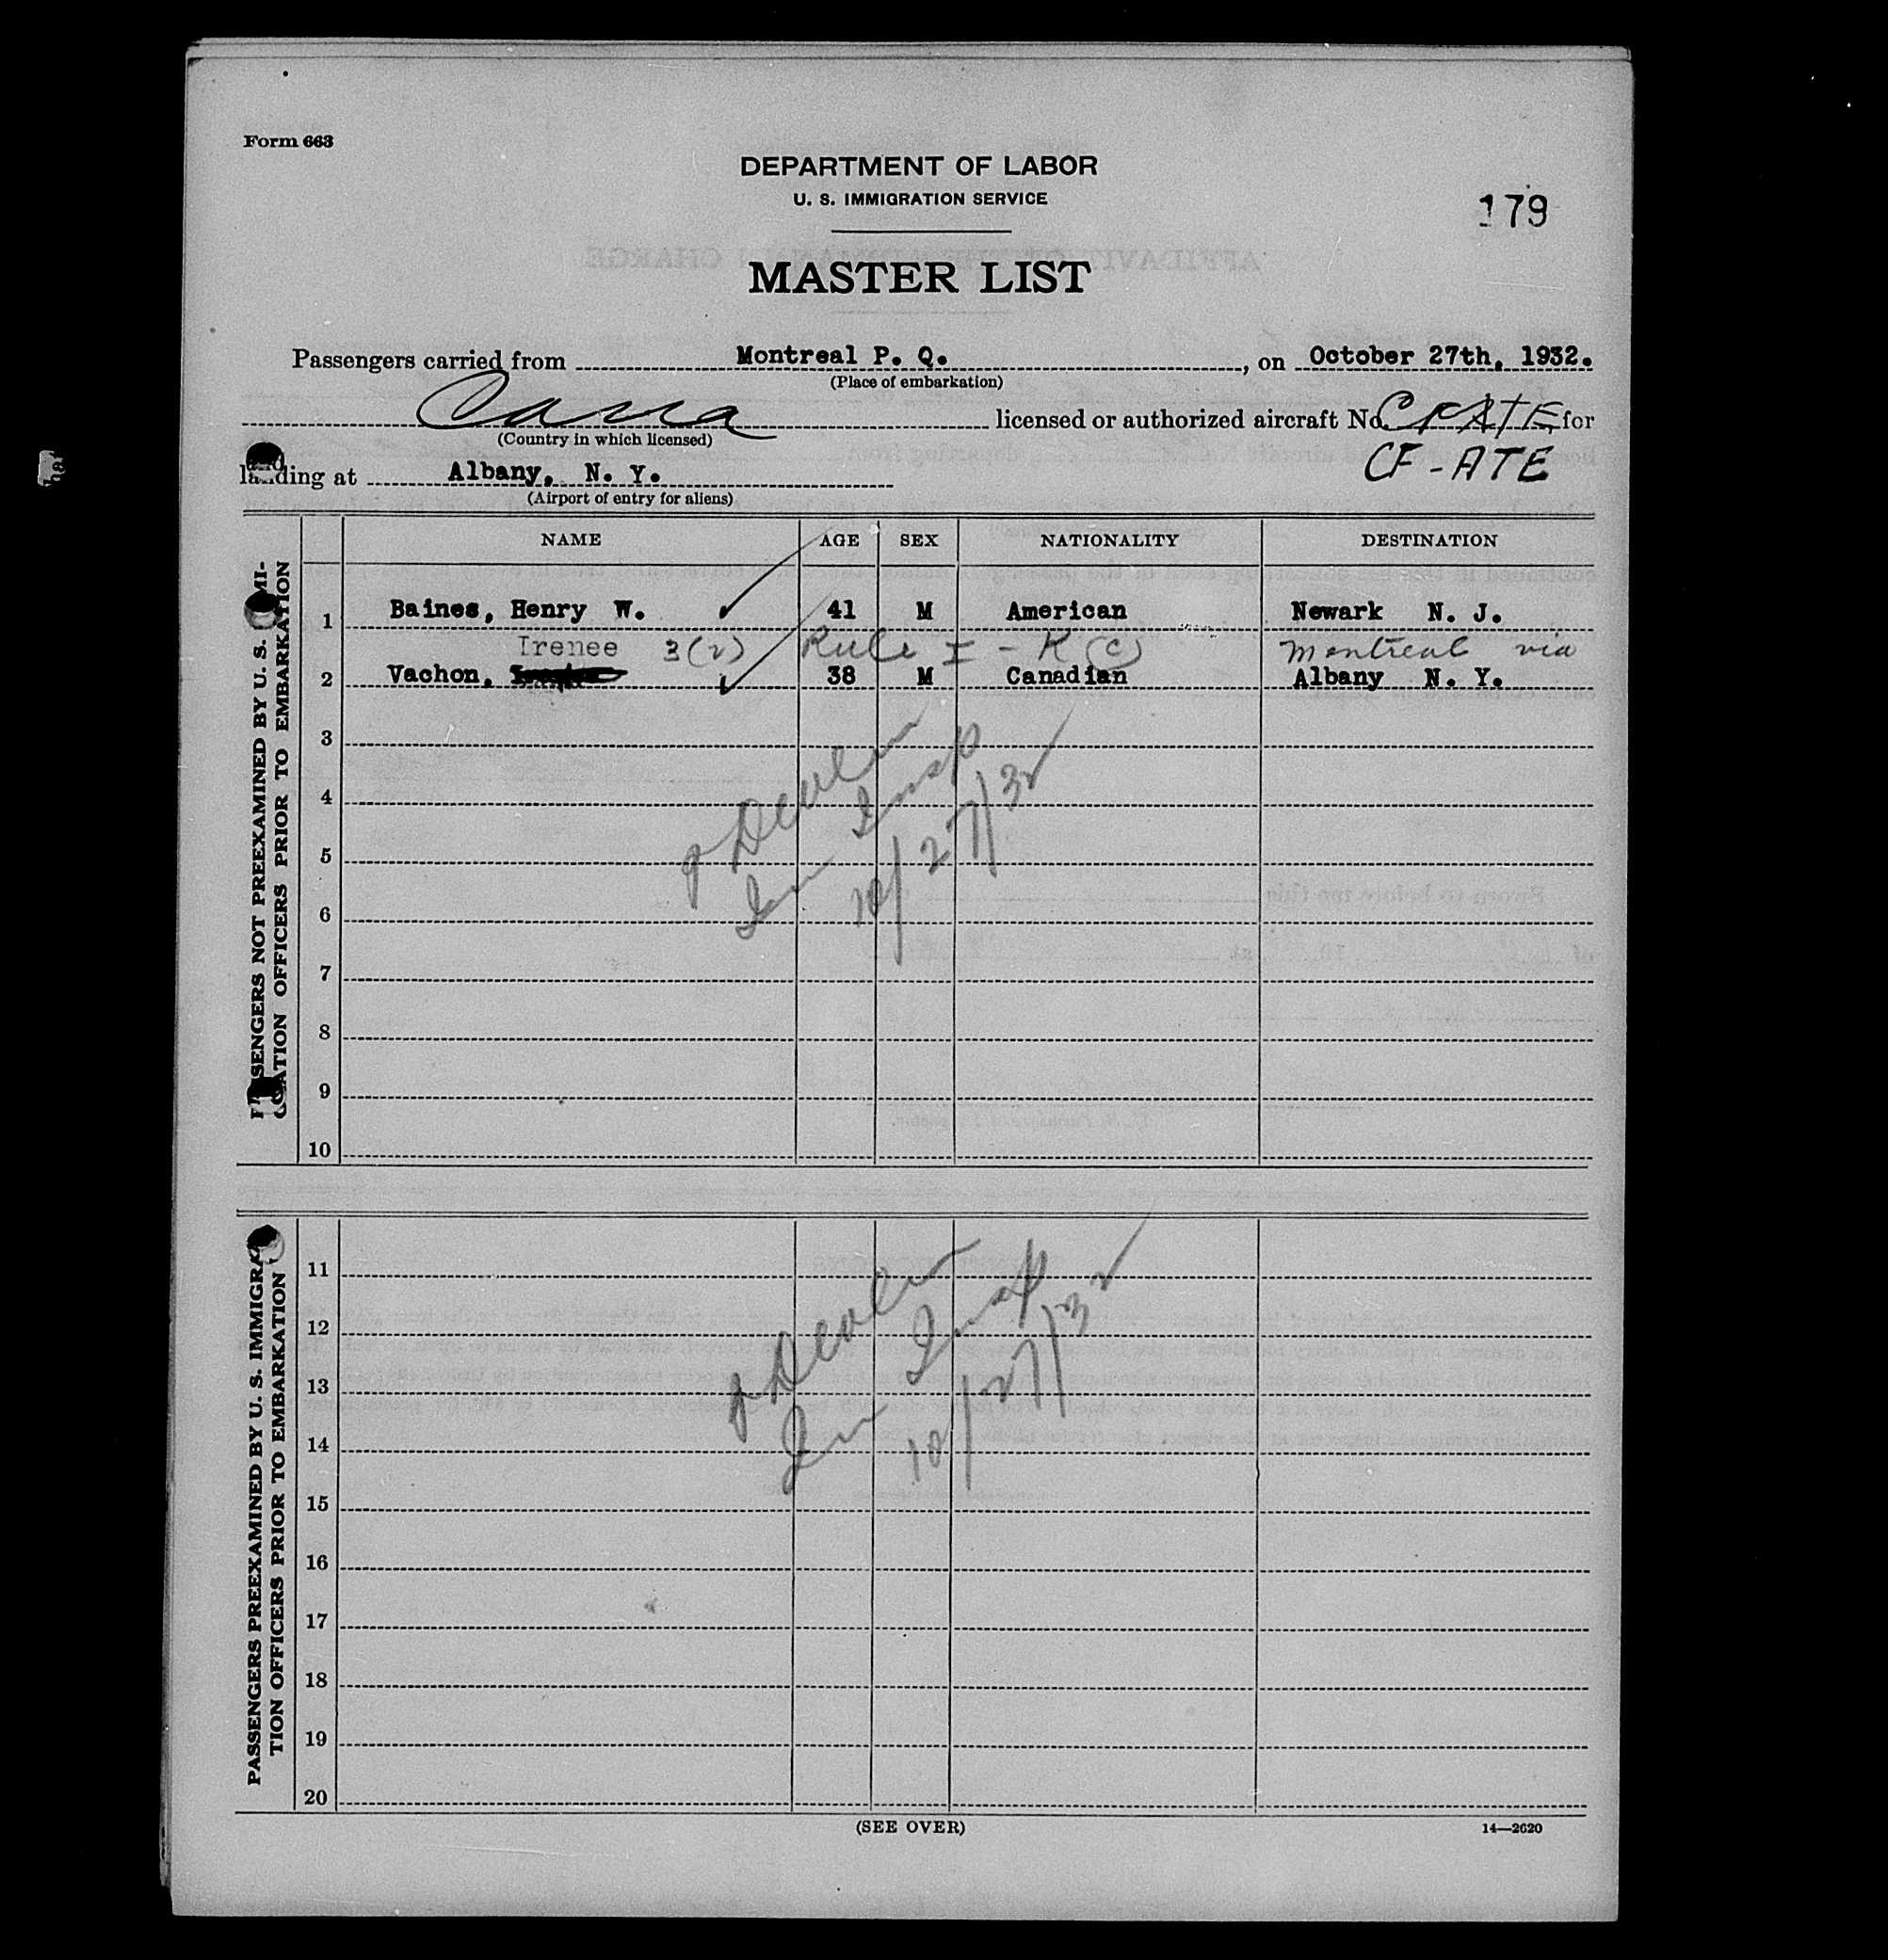 Form 663
DEPARTMENT OF LABOR
U. S. IMMIGRATION SERVICE
179
MASTER LIST
Passengers carried from Montreal P. Q., on October 27th, 1932.
(Place of embarkation)
Cana licensed or authorized aircraft No. CFATE for
(Country in which licensed)
CF-ATE
landing at Albany, N. Y.
(Airport of entry for aliens)
NAME AGE SEX NATIONALITY DESTINATION
PASSENGERS NOT PREEXAMINED BY U. S. IMMI-
GRATION OFFICERS PRIOR TO EMBARKATION
1 Baines, Henry W. 41 M American Newark N. J.
Irenee 3(2) Rule I - K (c) Montreal via
2 Vachon, 38 M Canadian Albany N. Y.
3
4
5
6
7
8
9
10
Imm Insp
10/27/32
PASSENGERS PREEXAMINED BY U. S. IMMIGRA-
TION OFFICERS PRIOR TO EMBARKATION
11
12
13
14
15
16
17
18
19
20
Imm Insp
10/27/32
(SEE OVER)
14—2620